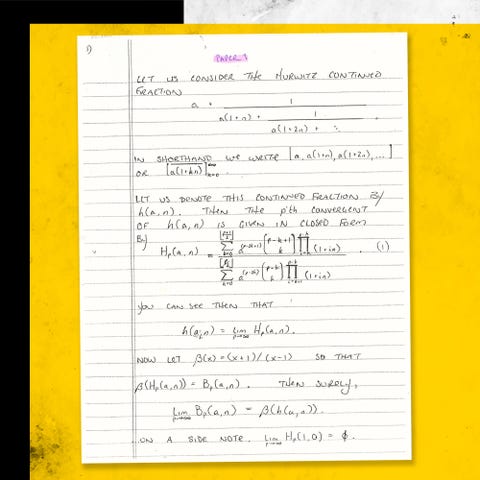 1)
PAPER 1
LET US CONSIDER THE HURWITZ CONTINUED
FRACTION
a + 1 / (a(1+n) + 1 / (a(1+2n) + ⋱
IN SHORTHAND WE WRITE [a, a(1+n), a(1+2n), ...]
OR [a(1+kn)]_{k=0}^{∞}.
LET US DENOTE THIS CONTINUED FRACTION BY
h(a,n). THEN THE p'th CONVERGENT
OF h(a,n) IS GIVEN IN CLOSED FORM
BY
H_p(a,n) = (1)
YOU CAN SEE THEN THAT
h(a,n) = lim_{p→∞} H_p(a,n).
NOW LET β(x) = (x+1)/(x-1) SO THAT
β(H_p(a,n)) = B_p(a,n). THEN SURELY,
lim_{p→∞} B_p(a,n) = β(h(a,n)).
ON A SIDE NOTE, lim_{p→∞} H_p(1,0) = ϕ.